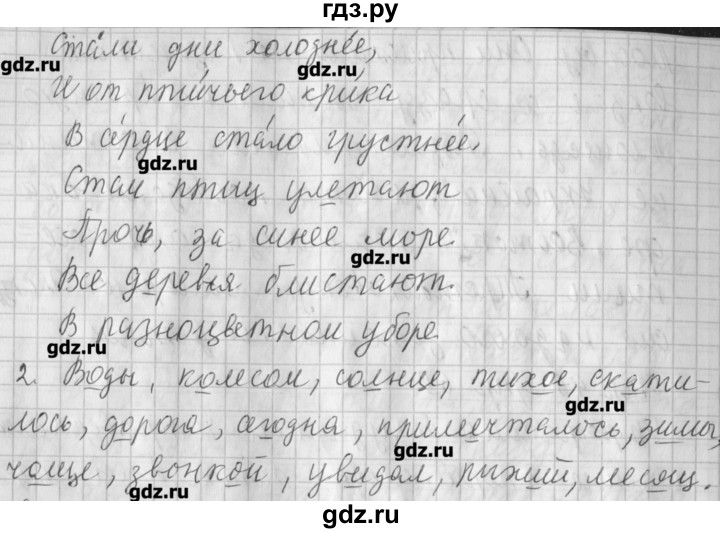 гдз.ру
Ста́ли дни холодне́е,
И от пти́чьего кри́ка
В се́рдце ста́ло грустне́е.
Стаи птиц улетают
Прочь, за синее море.
Все деревья блистают.
В разноцветном уборе.
2. Воды, колесом, солнце, тихое, скати-
лось, дорога, сегодня, примечталось, зимы,
чаще, звонкой, увидал, рыжий, месяц.
gdz.ru
gdz.ru
gdz.ru
gdz.ru
gdz.ru
gdz.ru
gdz.ru
gdz.ru
gdz.ru